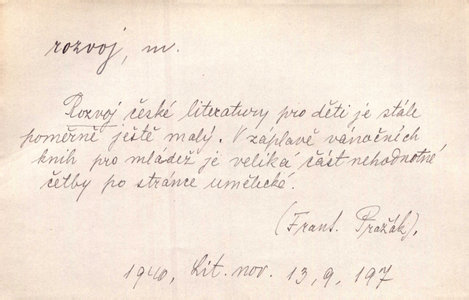 rozvoj, m.
Rozvoj české literatury pro děti je stále
poměrně ještě malý. V záplavě vánočních
knih pro mládež je veliká část nehodnotné
četby po stránce umělecké.
(Frant. Pražák).
1940, Lit. nov. 13, 9, 197